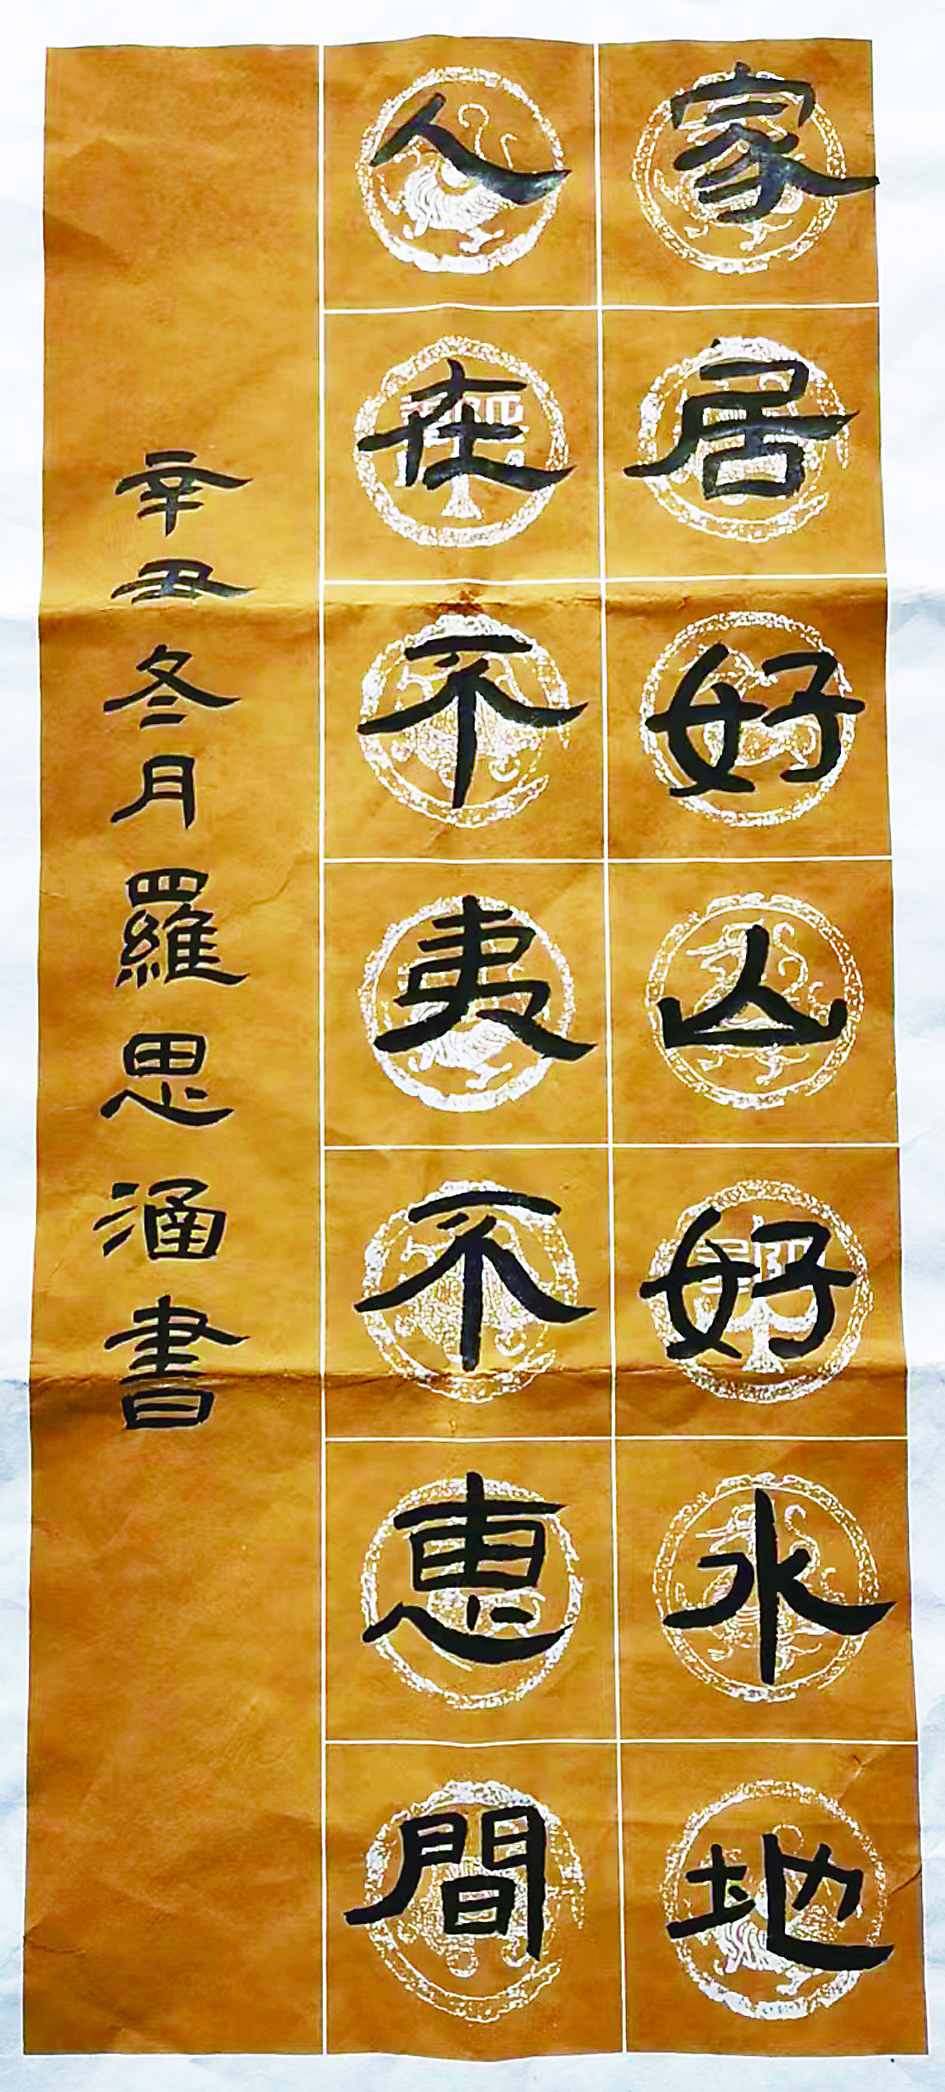 家居好山好水地
人在不夷不惠間
辛丑冬月羅思涵書